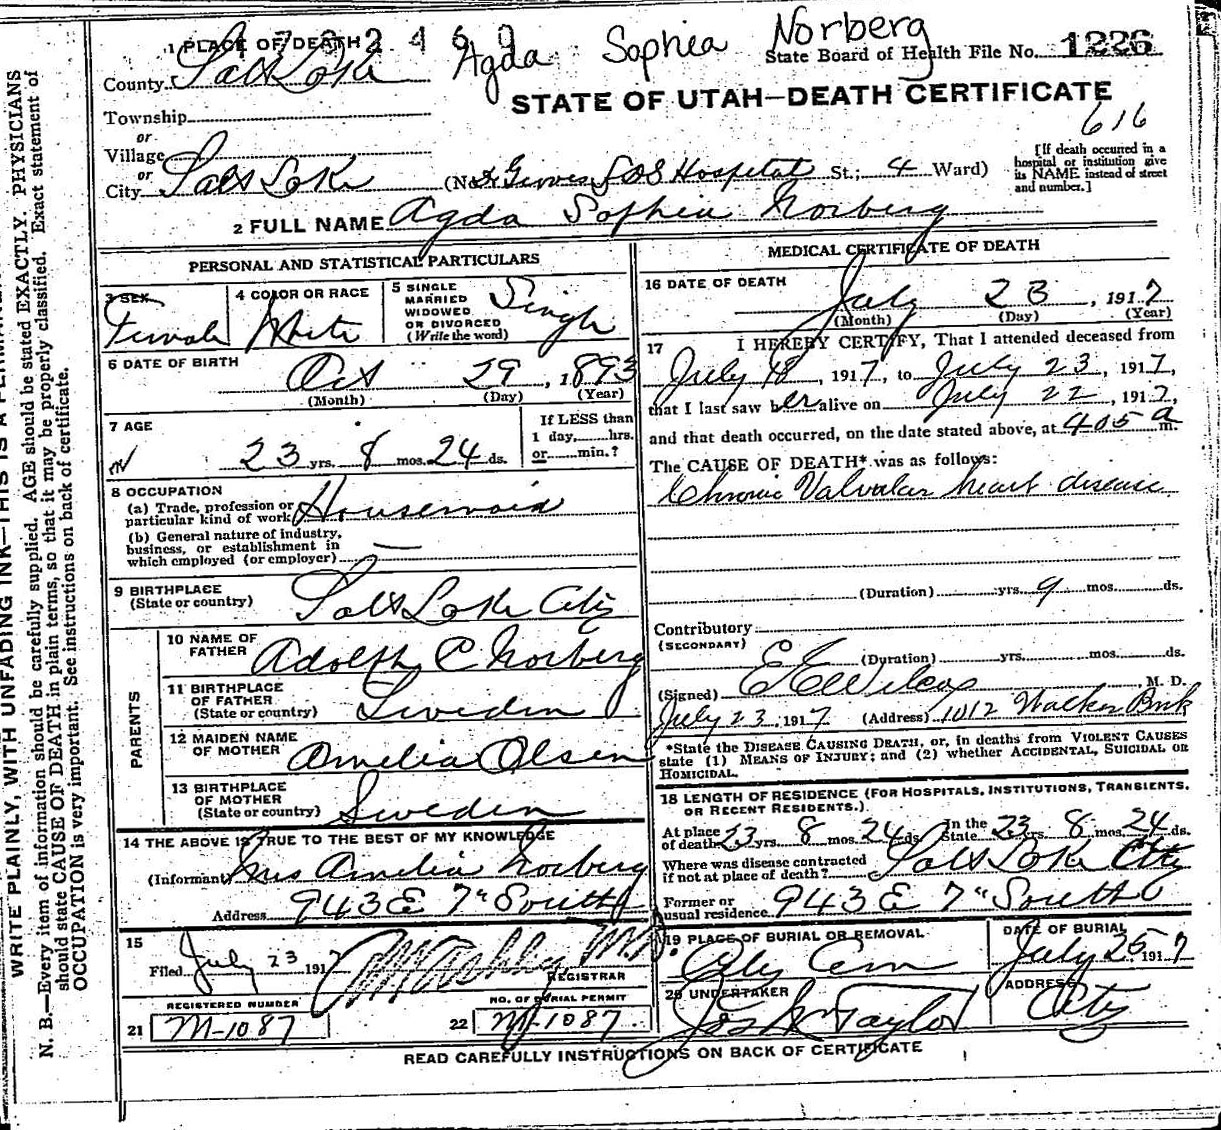 Agda Sophia Norberg
1 PLACE OF DEATH
State Board of Health File No. 1226
County Salt Lake
STATE OF UTAH—DEATH CERTIFICATE
616
Township
or
Village
or
City Salt Lake (No. LDS Hospital St.; 4 Ward)
[If death occurred in a hospital or institution give its NAME instead of street and number.]
2 FULL NAME Agda Sophia Norberg
PERSONAL AND STATISTICAL PARTICULARS
3 SEX
Female
4 COLOR OR RACE
White
5 SINGLE
MARRIED
WIDOWED
OR DIVORCED
(Write the word)
Single
6 DATE OF BIRTH
Oct 29, 1893
(Month) (Day) (Year)
7 AGE
23 yrs. 8 mos. 24 ds.
If LESS than
1 day,......hrs.
or......min.?
8 OCCUPATION
(a) Trade, profession or
particular kind of work Housemaid
(b) General nature of industry,
business, or establishment in
which employed (or employer) —
9 BIRTHPLACE
(State or country) Salt Lake City
PARENTS
10 NAME OF
FATHER Adolph C Norberg
11 BIRTHPLACE
OF FATHER
(State or country) Sweden
12 MAIDEN NAME
OF MOTHER Amelia Olsen
13 BIRTHPLACE
OF MOTHER
(State or country) Sweden
14 THE ABOVE IS TRUE TO THE BEST OF MY KNOWLEDGE
(Informant) Mrs Amelia Norberg
Address 943 E 7" South
15
Filed July 23 1917
REGISTRAR
REGISTERED NUMBER
21 M-1087
NO. OF BURIAL PERMIT
22 M-1087
MEDICAL CERTIFICATE OF DEATH
16 DATE OF DEATH
July 23, 1917
(Month) (Day) (Year)
17 I HEREBY CERTIFY, That I attended deceased from
July 18, 1917, to July 23, 1917,
that I last saw her alive on July 22, 1917,
and that death occurred, on the date stated above, at 405 a m.
The CAUSE OF DEATH* was as follows:
Chronic Valvular heart disease
(Duration) yrs. 9 mos. ds.
Contributory
(SECONDARY)
(Duration) yrs. mos. ds.
(Signed) E E Wilcox, M. D.
July 23, 1917 (Address) 1012 Walker Bnk
*State the DISEASE CAUSING DEATH, or, in deaths from VIOLENT CAUSES
state (1) MEANS OF INJURY; and (2) whether ACCIDENTAL, SUICIDAL OR
HOMICIDAL.
18 LENGTH OF RESIDENCE (FOR HOSPITALS, INSTITUTIONS, TRANSIENTS,
OR RECENT RESIDENTS.)
At place
of death 23 yrs. 8 mos. 24 ds. In the State 23 yrs. 8 mos. 24 ds.
Where was disease contracted
if not at place of death? Salt Lake City
Former or
usual residence 943 E 7" South
19 PLACE OF BURIAL OR REMOVAL
City Cem
DATE OF BURIAL
July 25 1917
20 UNDERTAKER
Jos Wm Taylor
ADDRESS
City
READ CAREFULLY INSTRUCTIONS ON BACK OF CERTIFICATE
WRITE PLAINLY, WITH UNFADING INK—THIS IS A
N. B.—Every item of information should be carefully supplied. AGE should be stated EXACTLY. PHYSICIANS
should state CAUSE OF DEATH in plain terms, so that it may be properly classified. Exact statement of
OCCUPATION is very important. See instructions on back of certificate.